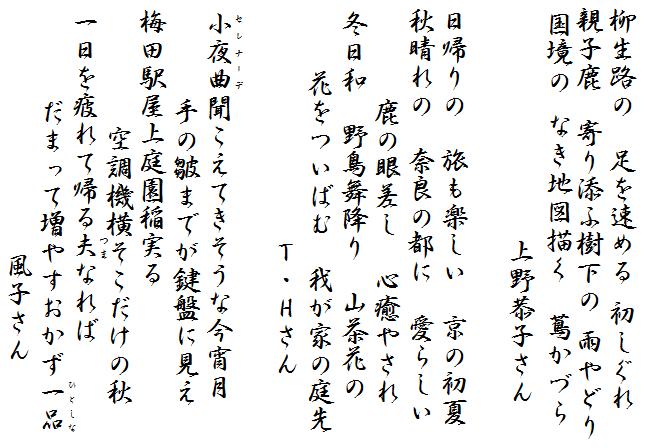 柳生路の　足を速める　初しぐれ
親子鹿　寄り添ふ樹下の　雨やどり
国境の　なき地図描く　蔦かづら
上野恭子さん
日帰りの　旅も楽しい　京の初夏
秋晴れの　奈良の都に　愛らしい
鹿の眼差し　心癒やされ
冬日和　野鳥舞降り　山茶花の
花をついばむ　我が家の庭先
T・Hさん
小夜曲聞こえてきそうな今宵月
セレナーデ
手の皺までが鍵盤に見え
梅田駅屋上庭園稲実る
空調機横そこだけの秋
一日を疲れて帰る夫なれば
つま
だまって増やすおかず一品
ひとしな
風子さん